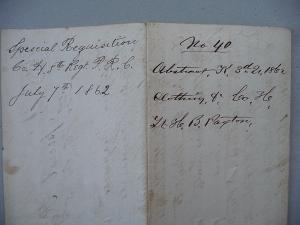 Special Requisition
Co. H, 5th Regt. P. R. C.
July 7th 1862
No 40
Abstract K 3d Qr 1862
Clothing, &c Co. H,
Lt H. B. Paxton,